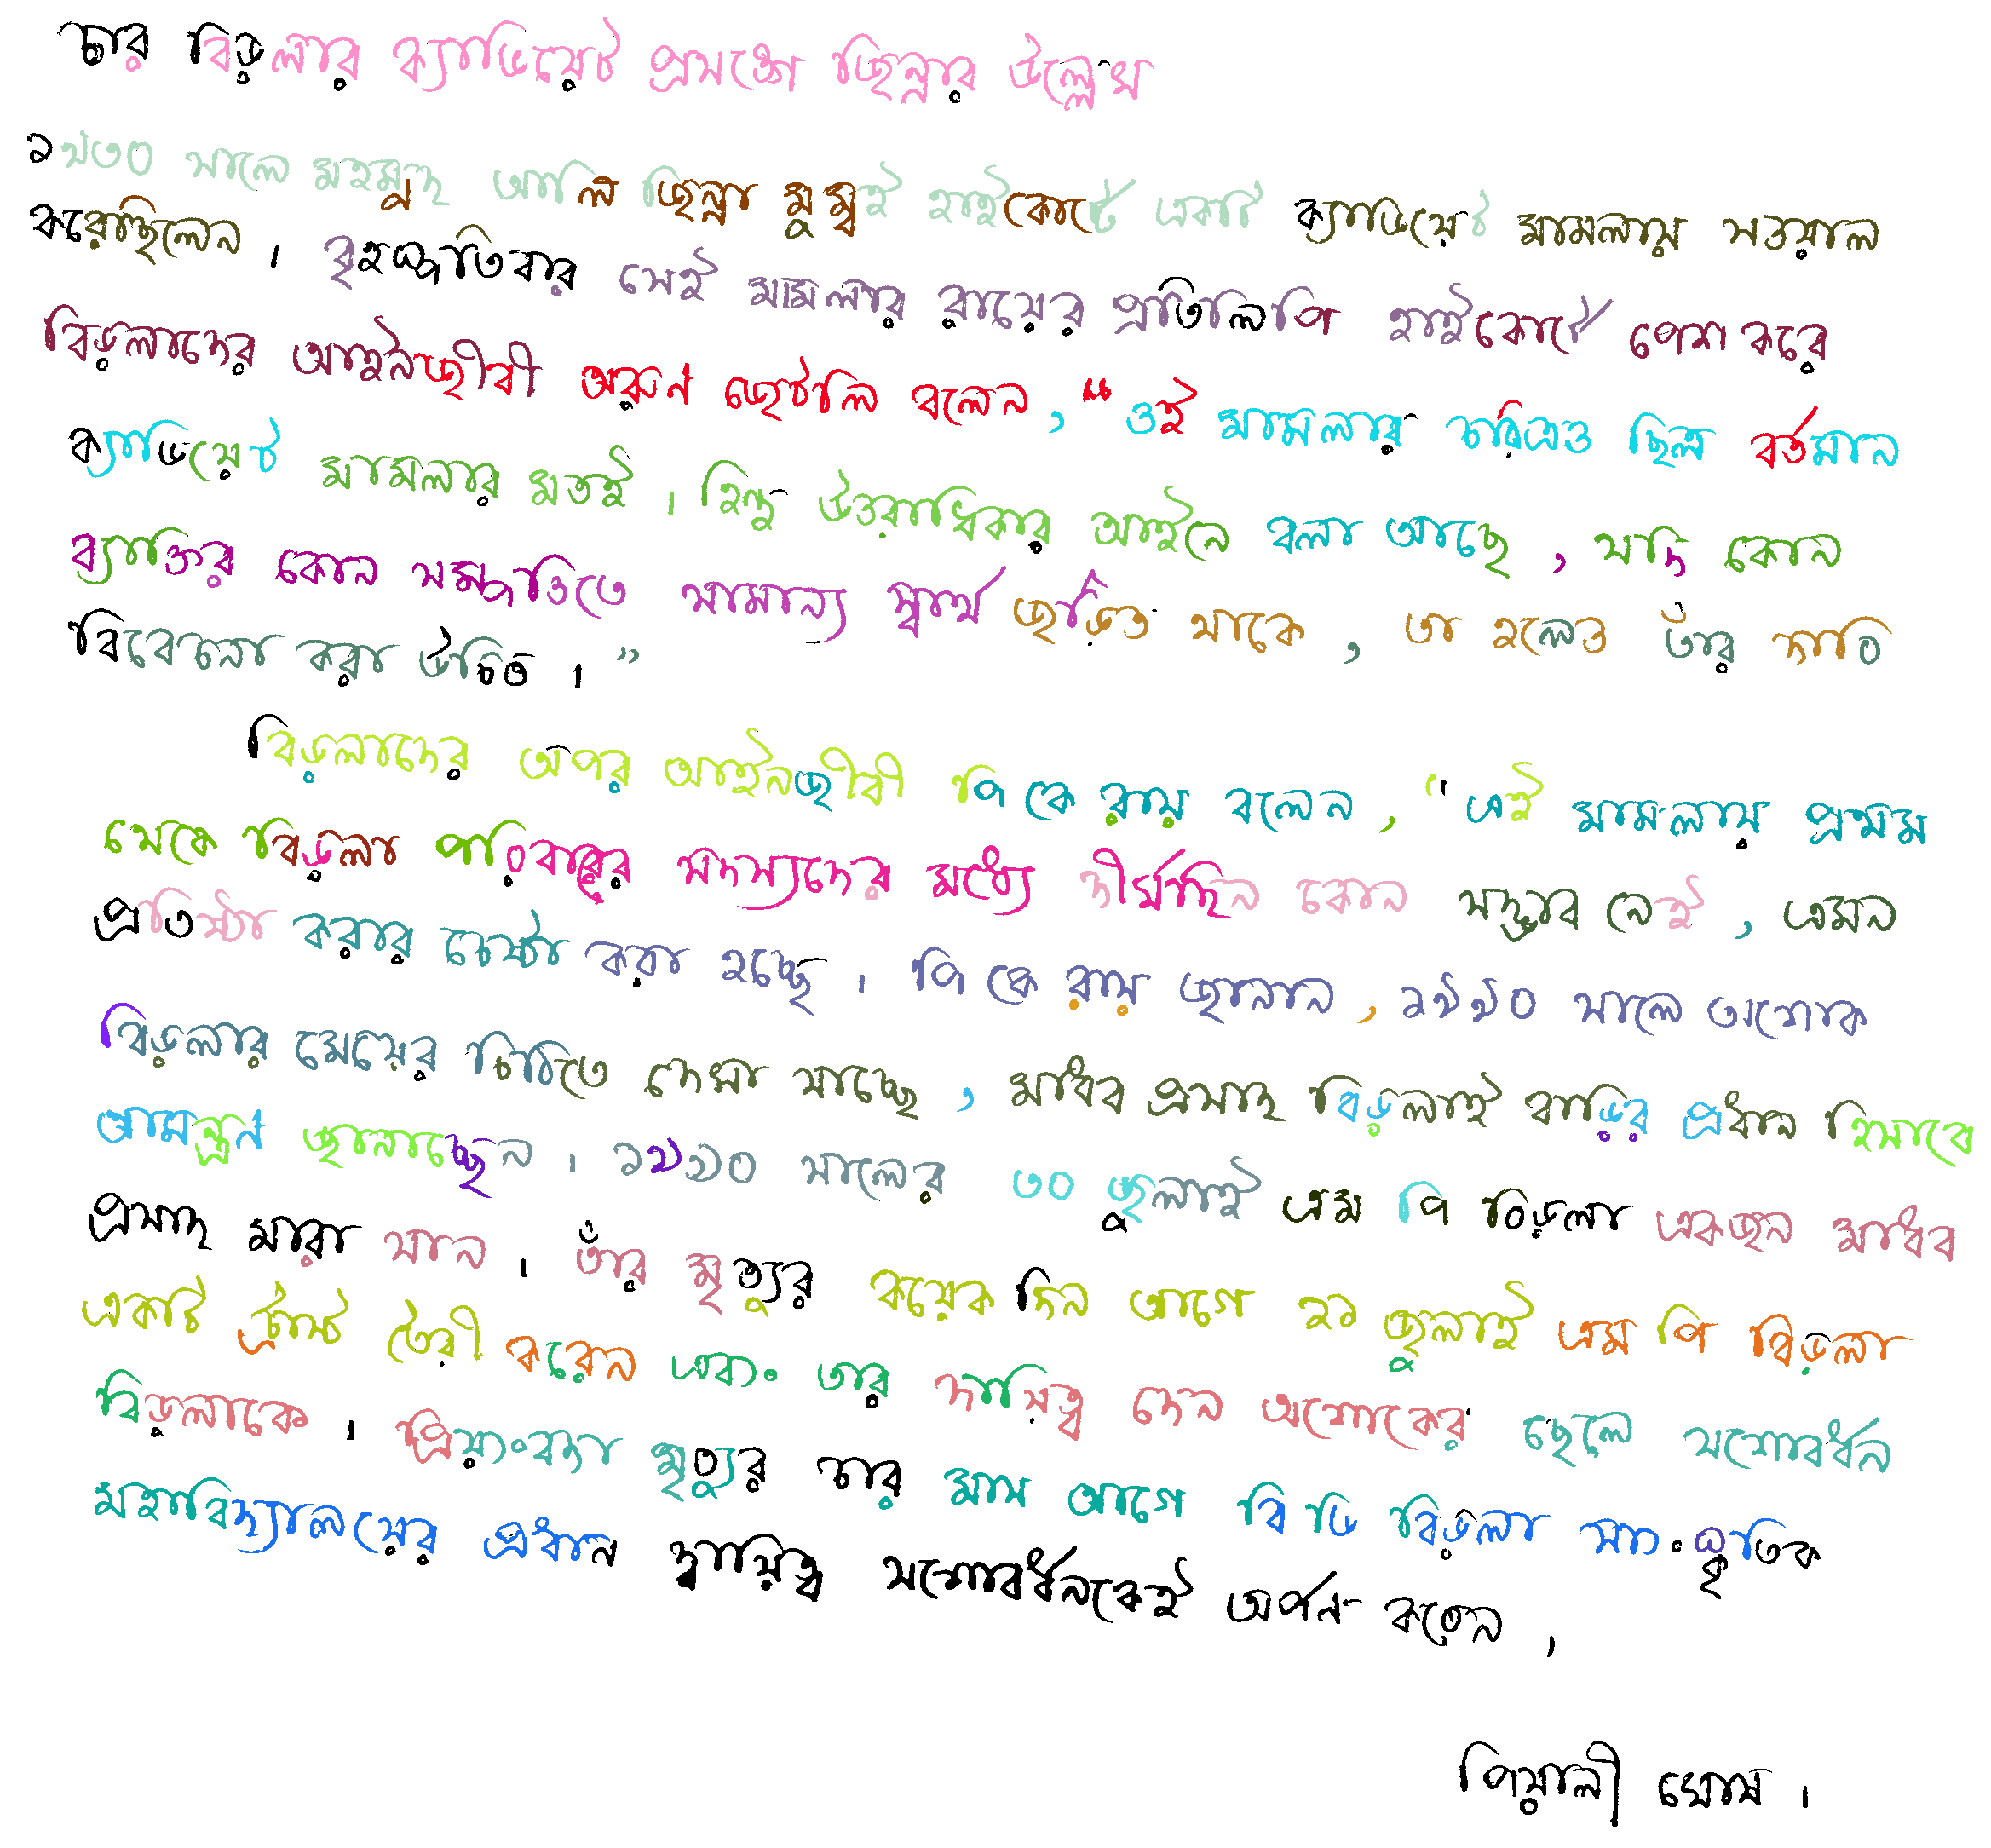 চার বিড়লার ক্যাভিয়েট প্রসঙ্গে জিন্নার উল্লেখ
১৯৩০ সালে মহম্মদ আলি জিন্না মুম্বই হাইকোর্টে একটি ক্যাভিয়েট মামলায় সওয়াল
করেছিলেন । বৃহস্পতিবার সেই মামলার রায়ের প্রতিলিপি হাইকোর্টে পেশ করে
বিড়লাদের আইনজীবী অরুণ জেটলি বলেন , “ ওই মামলার চরিত্রও ছিল বর্তমান
ক্যাভিয়েট মামলার মতই । হিন্দু উত্তরাধিকার আইনে বলা আছে , যদি কোন
ব্যাক্তির কোন সম্পত্তিতে সামান্য স্বার্থ জড়িত থাকে , তা হলেও তাঁর দাবি
বিবেচনা করা উচিত । ”
বিড়লাদের অপর আইনজীবী পি কে রায় বলেন , “ এই মামলায় প্রথম
থেকে বিড়লা পরিবারের সদস্যদের মধ্যে দীর্ঘদিন কোন সদ্ভাব নেই , এমন
প্রতিষ্ঠা করার চেষ্টা করা হচ্ছে । পি কে রায় জানান , ১৯৯০ সালে অশোক
বিড়লার মেয়ের চিঠিতে দেখা যাচ্ছে , মাধব প্রসাদ বিড়লাই বাড়ির প্রধান হিসাবে
আমন্ত্রণ জানাচ্ছেন । ১৯৯০ সালের ৩০ জুলাই এম পি বিড়লা একজন মাধব
প্রসাদ মারা যান । তাঁর মৃত্যুর কয়েক দিন আগে ২১ জুলাই এম পি বিড়লা
একটি ট্রাস্ট তৈরী করেন এবং তার দায়িত্ব দেন অশোকের ছেলে যশোবর্ধন
বিড়লাকে । প্রিয়ংবদা মৃত্যুর চার মাস আগে বি ডি বিড়লা সাংস্কৃতিক
মহাবিদ্যালয়ের প্রধান দ্বায়িত্ব যশোবর্ধনকেই অর্পন করেন ,
পিয়ালী ঘোষ ।